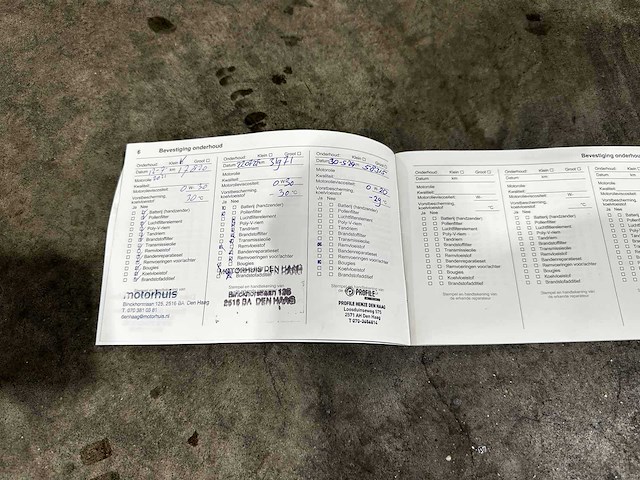 6 Bevestiging onderhoud
Onderhoud: Klein Groot
Datum km 17.870
Motorolie
Kwaliteit:
Motorolieviscositeit: 0W30
Vorstbescherming
koelvloeistof: 30 °C
Ja Nee
Batterij (handzender)
Pollenfilter
Luchtfilterelement
Poly-V-riem
Tandriem
Brandstoffilter
Transmissieolie
Remvloeistof
Bandenreparatieset
Remvoeringen voor/achter
Bougies
Koelvloeistof
Brandstofadditief
motorhuis
Binckhorstlaan 125, 2516 BA Den Haag
T. 070 381 03 81
denhaag@motorhuis.nl
Onderhoud: Klein Groot
Datum km 31971
Motorolie
Kwaliteit:
Motorolieviscositeit: 0W30
Vorstbescherming
koelvloeistof: -30 °C
Ja Nee
Batterij (handzender)
Pollenfilter
Luchtfilterelement
Poly-V-riem
Tandriem
Brandstoffilter
Transmissieolie
Remvloeistof
Bandenreparatieset
Remvoeringen voor/achter
Bougies
Koelvloeistof
Brandstofadditief
MOTORHUIS DEN HAAG
Binckhorstlaan 125
2516 BA DEN HAAG
Onderhoud: Klein Groot
Datum 30-5-24
Motorolie
Kwaliteit:
Motorolieviscositeit: 0-20
Vorstbescherming
koelvloeistof: -29 °C
Ja Nee
Batterij (handzender)
Pollenfilter
Luchtfilterelement
Poly-V-riem
Tandriem
Brandstoffilter
Transmissieolie
Remvloeistof
Bandenreparatieset
Remvoeringen voor/achter
Bougies
Koelvloeistof
Brandstofadditief
PROFILE
PROFILE HENZE DEN HAAG
Loosduinseweg 575
2571 AH Den Haag
Bevestiging onderhoud
Onderhoud: Klein Groot
Datum km
Motorolie
Kwaliteit:
Motorolieviscositeit: W-
Vorstbescherming
koelvloeistof: °C
Ja Nee
Batterij (handzender)
Pollenfilter
Luchtfilterelement
Poly-V-riem
Tandriem
Brandstoffilter
Transmissieolie
Remvloeistof
Bandenreparatieset
Remvoeringen voor/achter
Bougies
Koelvloeistof
Brandstofadditief
Stempel en handtekening van
de erkende reparateur
Onderhoud: Klein Groot
Datum km
Motorolie
Kwaliteit:
Motorolieviscositeit: W-
Vorstbescherming
koelvloeistof: °C
Ja Nee
Batterij (handzender)
Pollenfilter
Luchtfilterelement
Poly-V-riem
Tandriem
Brandstoffilter
Transmissieolie
Remvloeistof
Bandenreparatieset
Remvoeringen voor/achter
Bougies
Koelvloeistof
Brandstofadditief
Stempel en handtekening van
de erkende reparateur